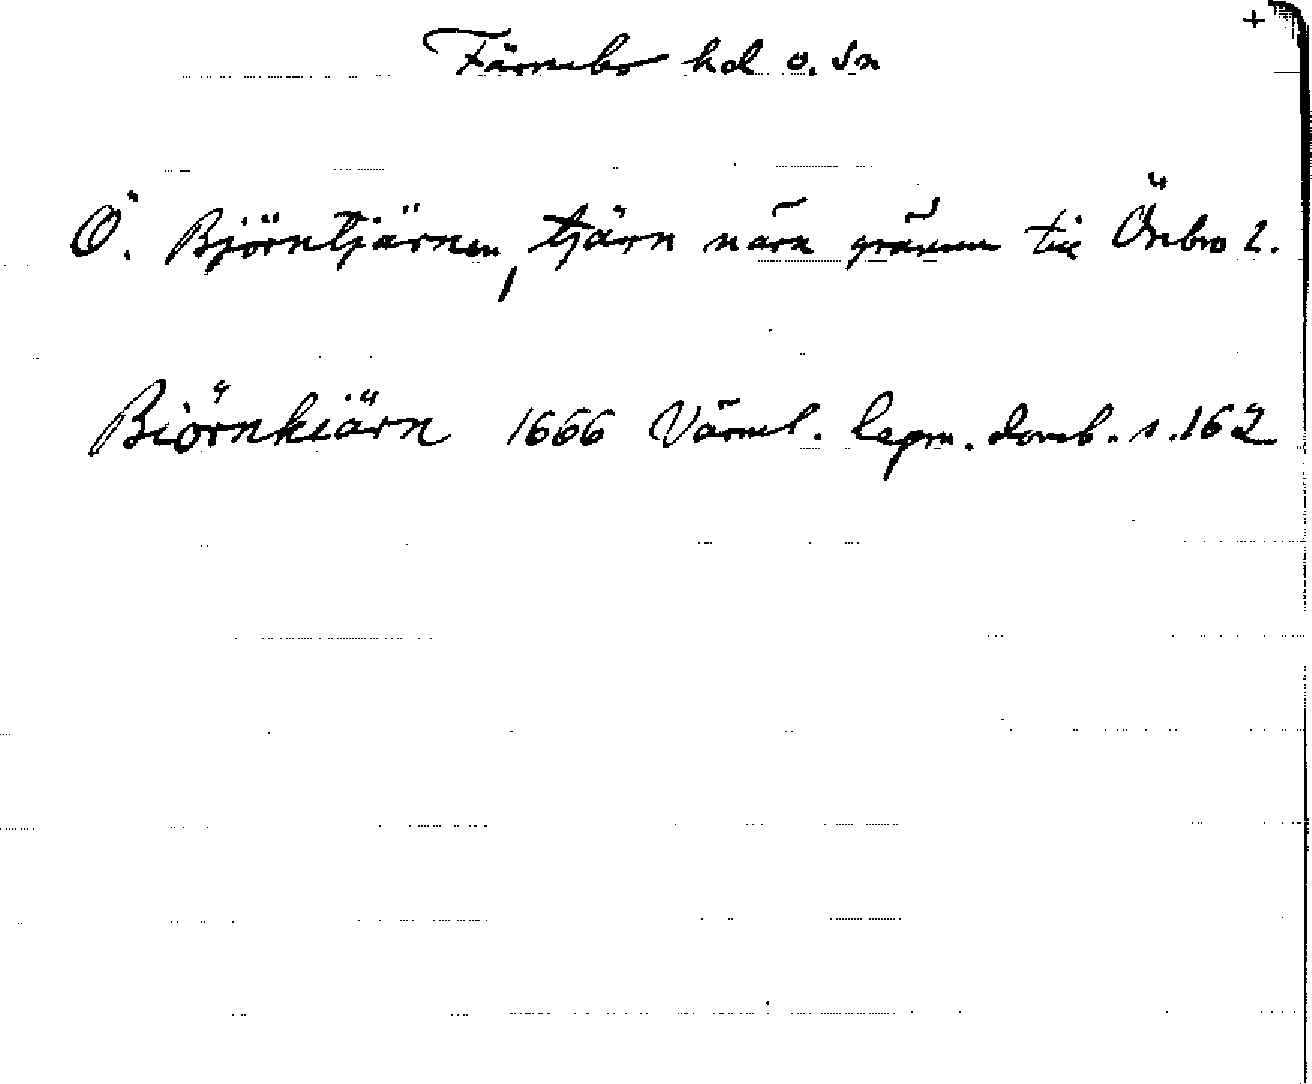 +
Färnebo hd o. sn
Ö. Björntjärnen, tjärn nära gränsen till Örebro l.
Biörnkiärn 1666 Värml. lagm. domb. s. 162